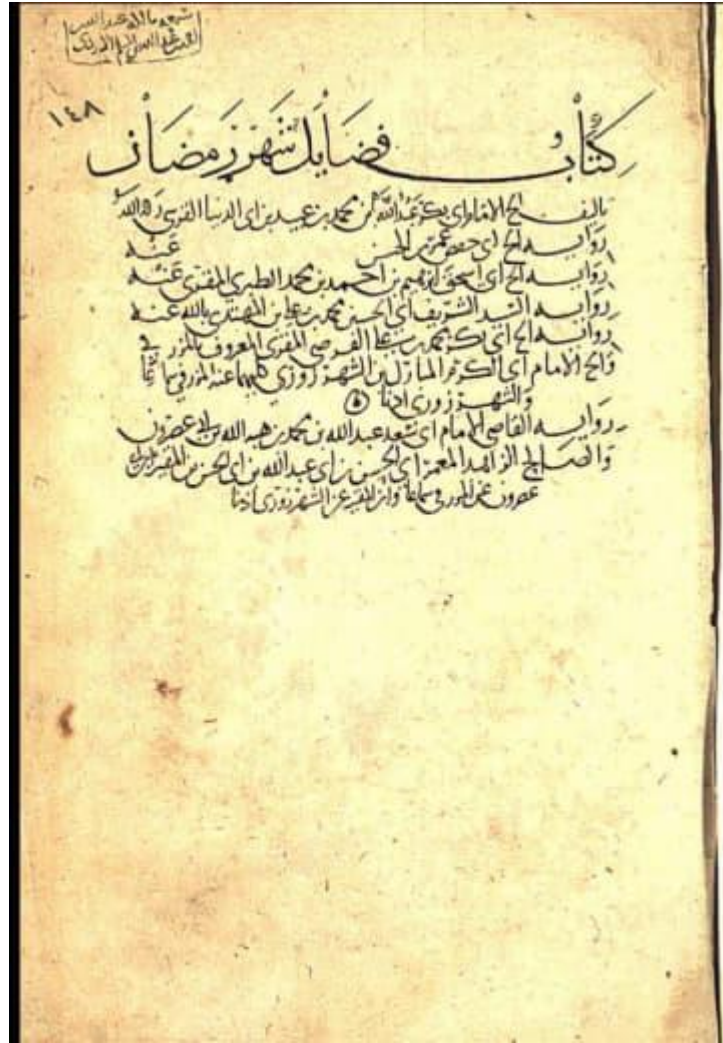 ١٤٨
كتاب فضايل شهر رمضان
تاليف الشيخ الامام ابي بكر عبد الله بن محمد بن عبيد بن ابي الدنيا القرشي رحمه الله
رواية الشيخ ابي حفص عمر بن الحسن عنه
رواية الشيخ ابي اسحق ابرهيم بن احمد بن محمد الطبري المقري عنه
رواية السيد الشريف ابي الحسين محمد بن علي بن المهتدي بالله عنه
رواية الشيخ ابي بكر محمد بن علي الفرضي المقري المعروف بالمزرفي
والشيخ الامام ابي الكرم المبارك بن الشهرزوري كليهما عنه المزرفي سماعا
والشهرزوري اذنا
رواية القاضي الامام ابي سعد عبد الله بن محمد بن هبة الله بن ابي عصرون
والصالح الزاهد المعمر ابي الحسن بن ابي عبد الله بن ابي الحسن بن المقير
عصرون عن المزرفي سماعا وابن المقير عن الشهرزوري اذنا